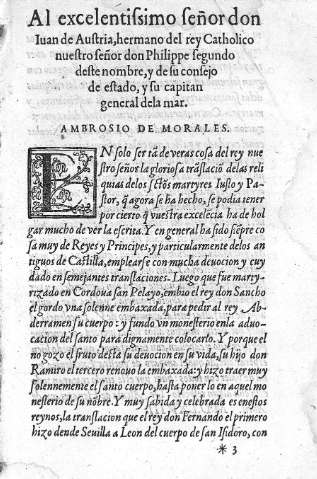 Al excelentissimo señor don
Iuan de Austria, hermano del rey Catholico
nuestro señor don Philippe segundo
deste nombre, y de su consejo
de estado, y su capitan
general dela mar.
AMBROSIO DE MORALES.
EN solo ser tã de veras cosa del rey nue
stro señor la gloriosa trãslaciõ de las reli
quias delos sctõs martyres Iusto y Pa-
stor, q̃ agora se ha hecho, se podia tener
por cierto q̃ vuestra excelẽcia ha de hol
gar mucho de ver la escrita. Y en general ha sido siẽpre co
sa muy de Reyes y Principes, y particularmente delos an
tiguos de Castilla, emplearse con mucha deuocion y cuy
dado en semejantes translaciones. Luego que fue marty-
rizado en Cordoua san Pelayo, embio el rey don Sancho
el gordo vna solenne embaxada, para pedir al rey Ab-
derramen su cuerpo: y fundo vn monesterio enla aduo-
cacion del santo para dignamente colocarlo. Y porque el
no gozo el fruto desta su deuocion en su vida, su hijo don
Ramiro el tercero renouo la embaxada: y hizo traer muy
solennemente el santo cuerpo, hasta poner lo en aquel mo
nesterio de su nõbre. Y muy sabida y celebrada es enestos
reynos, la translacion que el rey don Fernando el primero
hizo dende Seuilla a Leon del cuerpo de san Isidoro, con
* 3